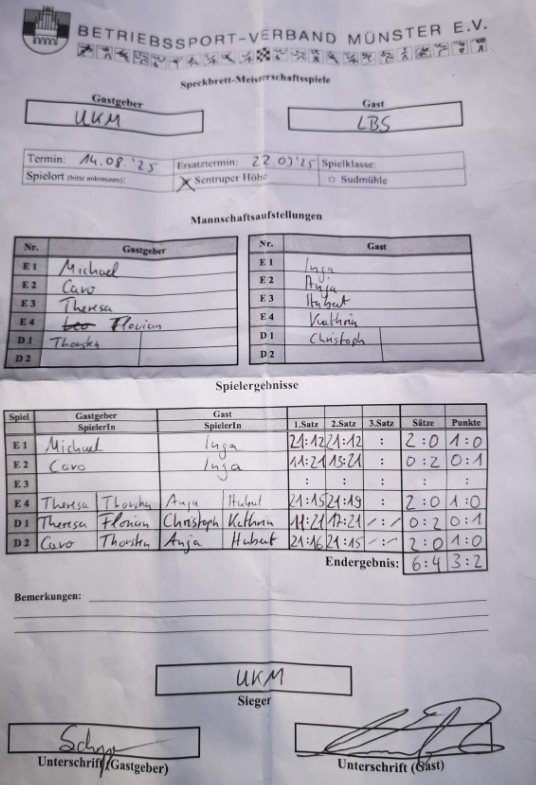 BETRIEBSSPORT-VERBAND MÜNSTER E.V.
Speckbrett-Meisterschaftsspiele
Gastgeber Gast
UKM LBS
Termin: 14.08.'25 Ersatztermin: 22.09.'25 Spielklasse:
Spielort (bitte ankreuzen): X Sentruper Höhe □ Sudmühle
Mannschaftsaufstellungen
Nr. Gastgeber Nr. Gast
E 1 Michael E 1 Inga
E 2 Caro E 2 Anja
E 3 Theresa E 3 Hubat
E 4 Leo Florian E 4 Kathrin
D 1 Thorsten D 1 Christoph
D 2 D 2
Spielergebnisse
Spiel Gastgeber SpielerIn Gast SpielerIn 1.Satz 2.Satz 3.Satz Sätze Punkte
E 1 Michael Inga 21:12 21:12 : 2:0 1:0
E 2 Caro Inga 11:21 13:21 : 0:2 0:1
E 3 : : : : :
E 4 Theresa Thorsten Anja Hubat 21:15 21:19 : 2:0 1:0
D 1 Theresa Florian Christoph Kathrin 11:21 17:21 /:/ 0:2 0:1
D 2 Caro Thorsten Anja Hubat 21:16 21:15 /:/ 2:0 1:0
Endergebnis: 6:4 3:2
Bemerkungen:
UKM
Sieger
Unterschrift (Gastgeber) Unterschrift (Gast)